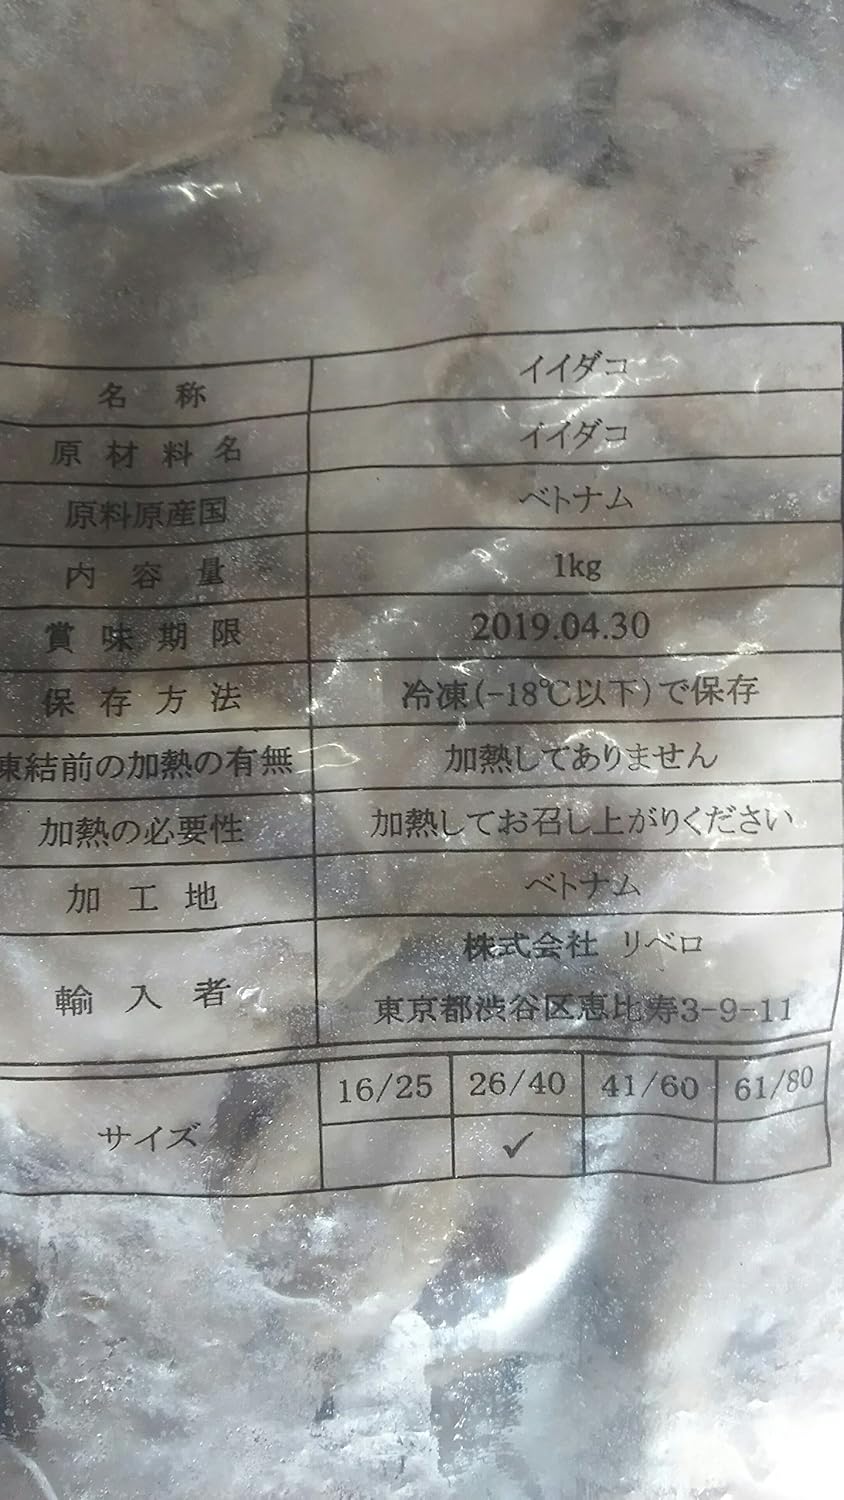 名 称 イイダコ
原 材 料 名 イイダコ
原料原産国 ベトナム
内 容 量 1kg
賞 味 期 限 2019.04.30
保 存 方 法 冷凍(-18℃以下)で保存
凍結前の加熱の有無 加熱してありません
加熱の必要性 加熱してお召し上がりください
加 工 地 ベトナム
輸 入 者 株式会社 リベロ
東京都渋谷区恵比寿3-9-11
サイズ 16/25 26/40 41/60 61/80
✓